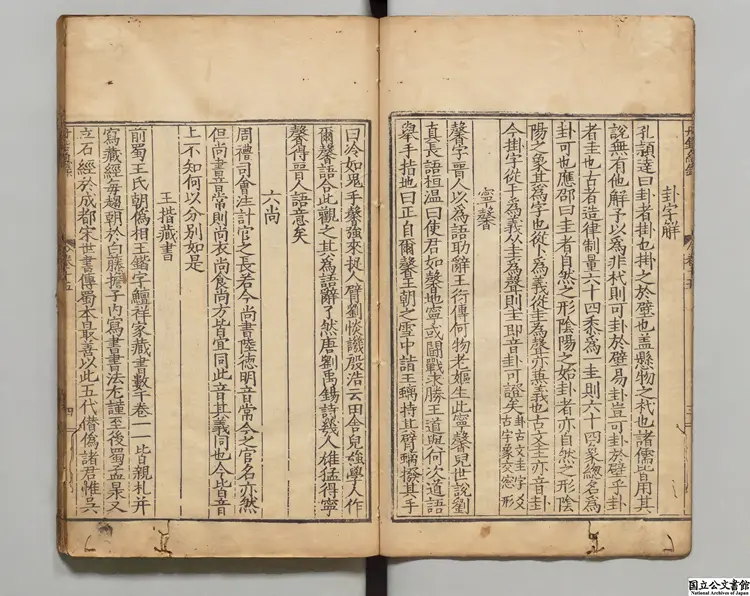 卦字解
孔頴達曰卦者掛也掛之於壁也盖懸物之杙也諸儒皆用其
說無有他解予以為非杙則可卦於壁易卦豈可卦於壁乎卦
者圭也古者造律制量六十四黍為一圭則六十四象總名為
卦可也應邵曰圭者自然之形陰陽之始卦者亦自然之形陰
陽之象其為字也從卜為義從圭為聲亦兼義也古文圭亦音卦
今掛字從手為義从圭為聲則圭即音卦可證矣卦古文圭字爻古字象交窓形
寧馨
馨字晉人以為語助辭王衍傳何物老嫗生此寧馨兒世說劉
真長語桓温曰使君如馨地寧或鬪戰求勝王導與何次道語
舉手指地曰正自爾馨王朝之雪中詣王螭持其臂螭撥其手
曰冷如鬼手馨強來捉人臂劉惔譏殷浩云田舍兒強學人作
爾馨語合此觀之其為語辭了然唐劉禹錫詩幾人雄猛得寧
馨得晉人語意矣
六尚
周禮司會注計官之長若今尚書陸德明音常今之官名亦然
但尚書音常則尚衣尚食尚方皆宜同此音其義同也今皆音
上不知何以分別如是
王揩藏書
前蜀王氏朝偽相王鍇字鱣祥家藏書數千卷一一皆親札并
寫藏經每趨朝於白藤擔子内寫書書法尤謹至後蜀孟㫤又
立石經於成都宋世書傳蜀本最善以此五代僣偽諸君惟吴
卷十五
四
国立公文書館
National Archives of Japan